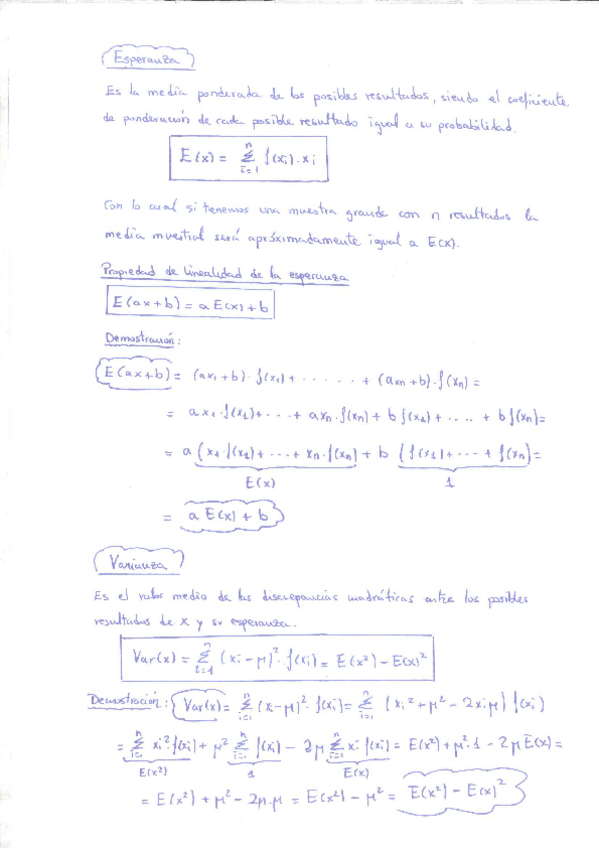 Esperanza
Es la media ponderada de los posibles resultados, siendo el coeficiente
de ponderación de cada posible resultado igual a su probabilidad.
E(x) = n Σ i=1 f(xi)·xi
Con lo cual si tenemos una muestra grande con n resultados la
media muestral será apróximadamente igual a E(x).
Propiedad de linealidad de la esperanza
E(ax+b) = a E(x) + b
Demostración:
E(ax+b) = (ax₁+b)·f(x₁) + ...... + (axn+b)·f(xn) =
= ax₁·f(x₁) + ... + axn·f(xn) + b f(x₁) + .... + b f(xn) =
= a (x₁·f(x₁) + ... + xn·f(xn)) + b (f(x₁) + ... + f(xn) =
E(x) 1
= a E(x) + b
Varianza
Es el valor medio de las discrepancias cuadráticas entre los posibles
resultados de x y su esperanza.
Var(x) = n Σ i=1 (xi - μ)²·f(xi) = E(x²) - E(x)²
Demostración: Var(x) = n Σ i=1 (x-μ)²·f(xi) = n Σ i=1 (xi² + μ² - 2xiμ) f(xi)
= n Σ i=1 xi²·f(xi) + μ² n Σ i=1 f(xi) - 2μ n Σ i=1 xi f(xi) = E(x²) + μ²·1 - 2μ E(x) =
E(x²) 1 E(x)
= E(x²) + μ² - 2μ·μ = E(x²) - μ² = E(x²) - E(x)²